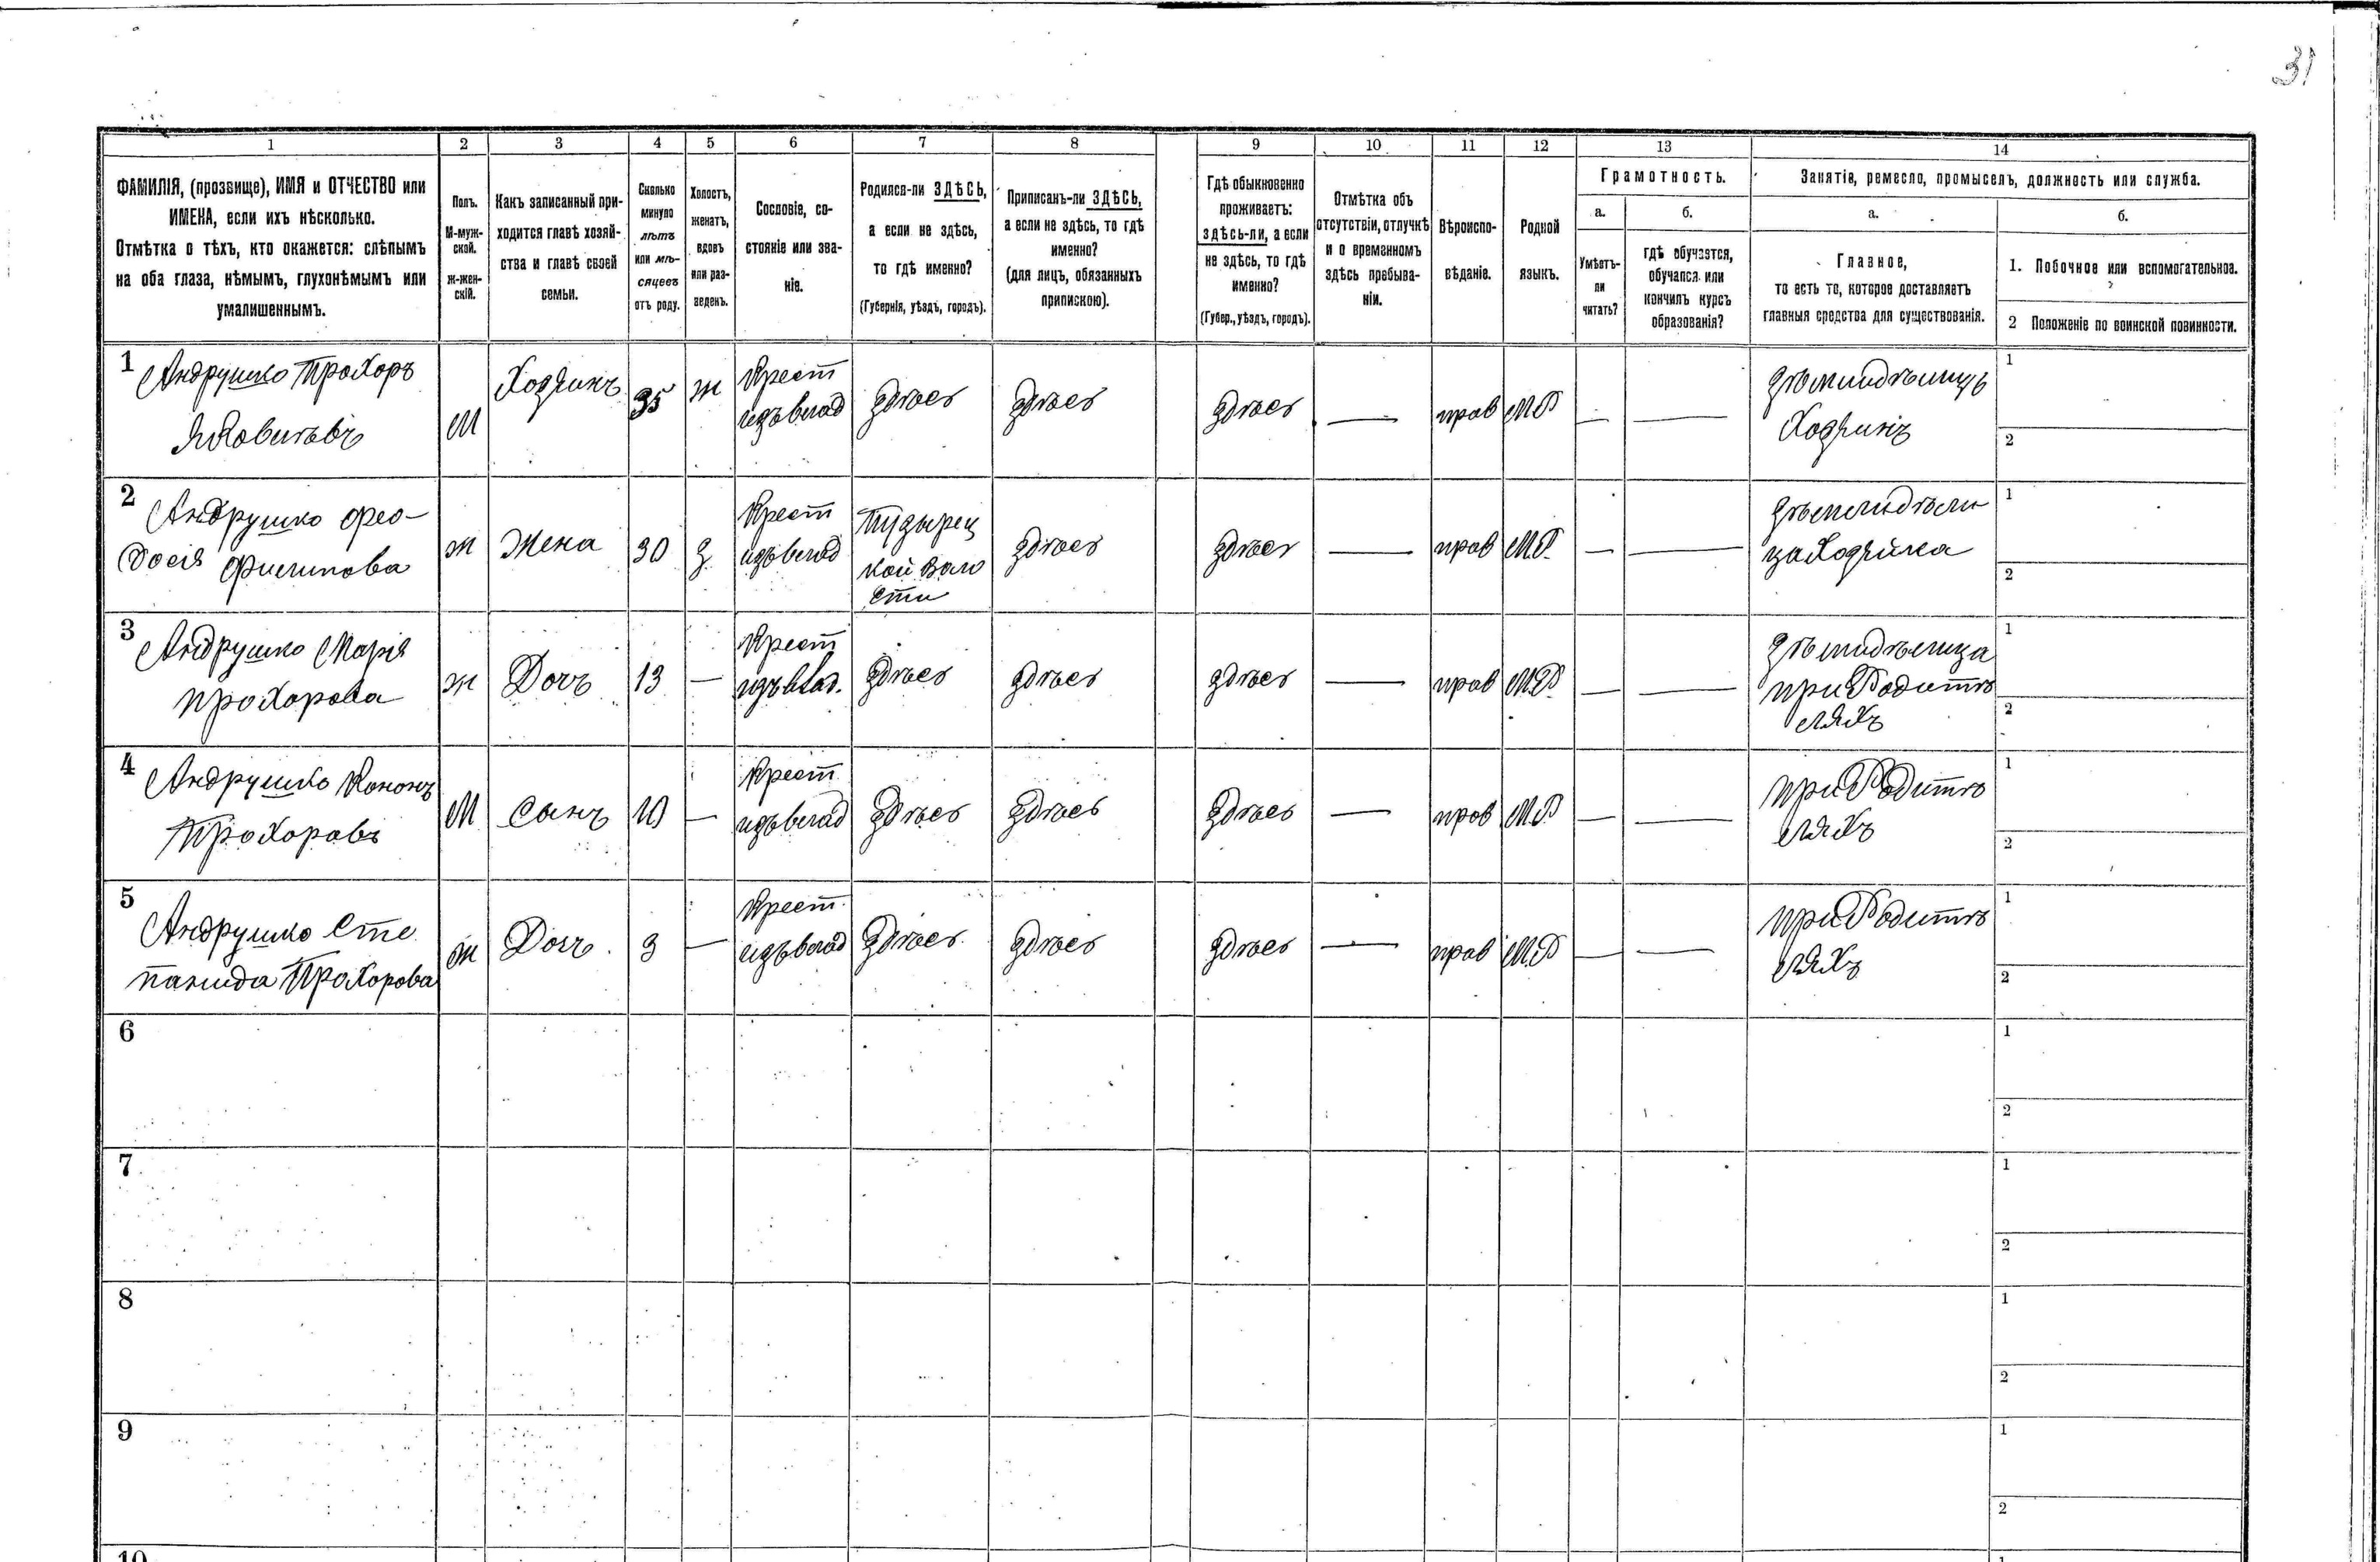 31
1 2 3 4 5 6 7 8 9 10 11 12 13 14
ФАМИЛІЯ, (прозвище), ИМЯ и ОТЧЕСТВО или
ИМЕНА, если ихъ нѣсколько.
Отмѣтка о тѣхъ, кто окажется: слѣпымъ
на оба глаза, нѣмымъ, глухонѣмымъ или
умалишеннымъ.
Полъ.
М-муж-
ской.
ж-жен-
скій.
Какъ записанный при-
ходится главѣ хозяй-
ства и главѣ своей
семьи.
Сколько
минуло
лѣтъ
или мѣ-
сяцевъ
отъ роду.
Холостъ,
женатъ,
вдовъ
или раз-
веденъ.
Сословіе, со-
стояніе или зва-
ніе.
Родился-ли ЗДѢСЬ,
а если не здѣсь,
то гдѣ именно?
(Губернія, уѣздъ, городъ).
Приписанъ-ли ЗДѢСЬ,
а если не здѣсь, то гдѣ
именно?
(для лицъ, обязанныхъ
припискою).
Гдѣ обыкновенно
проживаетъ:
здѣсь-ли, а если
не здѣсь, то гдѣ
именно?
(Губер., уѣздъ, городъ).
Отмѣтка объ
отсутствіи, отлучкѣ
и о временномъ
здѣсь пребыва-
ніи.
Вѣроиспо-
вѣданіе.
Родной
языкъ.
Грамотность.
а.
Умѣетъ-
ли
читать?
б.
гдѣ обучается,
обучался или
кончилъ курсъ
образованія?
Занятіе, ремесло, промыселъ, должность или служба.
а.
Главное,
то есть то, которое доставляетъ
главныя средства для существованія.
б.
1. Побочное или вспомогательное.
2 Положеніе по воинской повинности.
1
Андрушко Прохоръ
Яковлевъ
М
Хозяинъ
35
ж
Крест
изъ влад
здѣсь
здѣсь
здѣсь
—
прав
МР
—
—
Хозяинъ
1
2
2
Андрушко Фео-
досія Филипова
ж
Жена
30
з
Крест
изъ влад
Пузырец
кой воло
сти
здѣсь
здѣсь
—
прав
М.Р.
—
—
1
2
3
Андрушко Марія
Прохорова
ж
Дочъ
13
—
Крест
изъ влад.
здѣсь
здѣсь
здѣсь
—
прав
М.Р
—
—
при Родитѣ
ляхъ
1
2
4
Андрушко Кононъ
Прохоровъ
М
Сынъ
10
—
Крест
изъ влад
здѣсь
здѣсь
здѣсь
—
прав
М.Р
—
—
при Родитѣ
ляхъ
1
2
5
Андрушко Сте
панида Прохорова
ж
Дочъ
3
—
Крест.
изъ влад
здѣсь
здѣсь
здѣсь
—
прав
М.Р
—
—
при Родитѣ
ляхъ
1
2
6
1
2
7
1
2
8
1
2
9
1
2
10
1